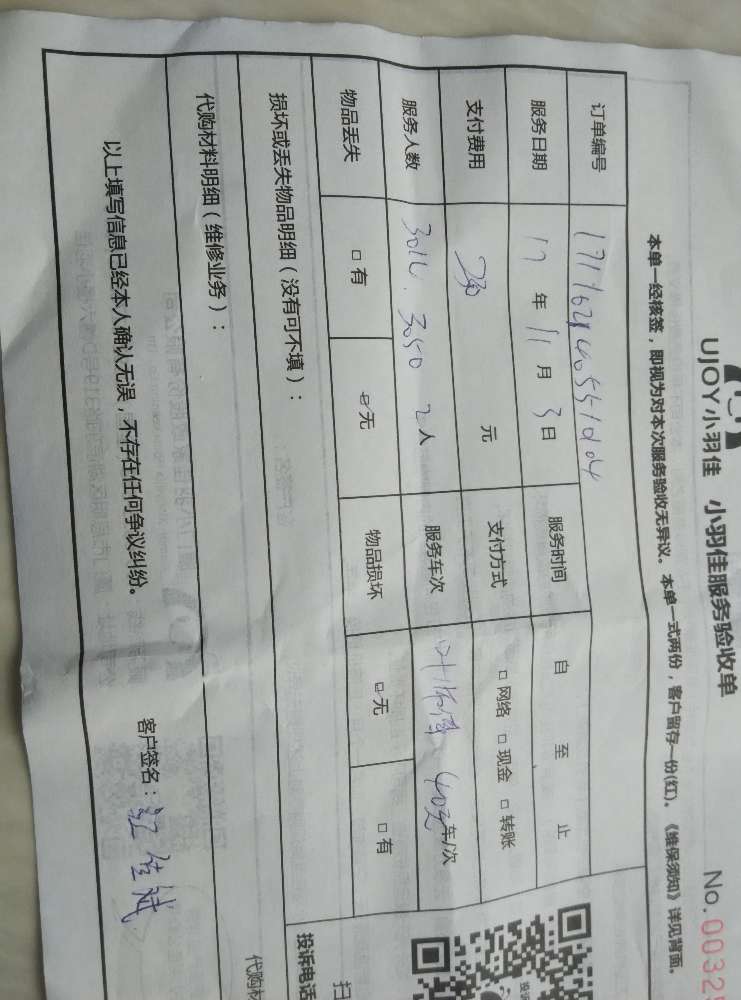 UJOY小羽佳 小羽佳服务验收单
No.0032
本单一经核签，即视为对本次服务验收无异议。本单一式两份，客户留存一份(红)。《维保须知》详见背面。
订单编号
服务日期 17 年 11 月 3 日 服务时间 自 至 止
支付费用 元 支付方式 □ 网络 □ 现金 □ 转账
服务人数 3016、3050 2人 服务车次 车/次
物品丢失 □ 有 □ 无 物品损坏 □ 无 □ 有
损坏或丢失物品明细（没有可不填）：
投诉电话
扫
代购材料明细（维修业务）：
代购材
以上填写信息已经本人确认无误，不存在任何争议纠纷。
客户签名：